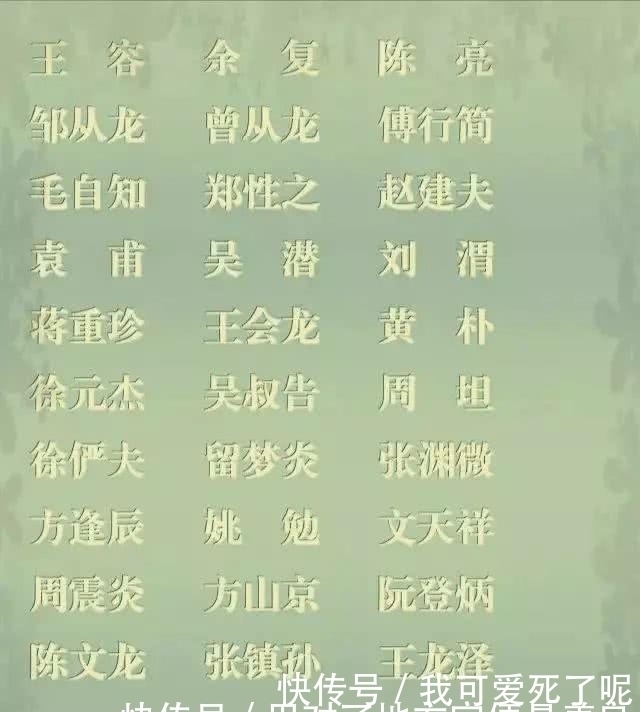 王容 余复 陈亮
邹从龙 曾从龙 傅行简
毛自知 郑性之 赵建夫
袁甫 吴潜 刘渭
蒋重珍 王会龙 黄朴
徐元杰 吴叔告 周坦
徐俨夫 留梦炎 张渊微
方逢辰 姚勉 文天祥
周震炎 方山京 阮登炳
陈文龙 张镇孙 王龙泽
快传号 / 我可爱死了呢
快传号 /